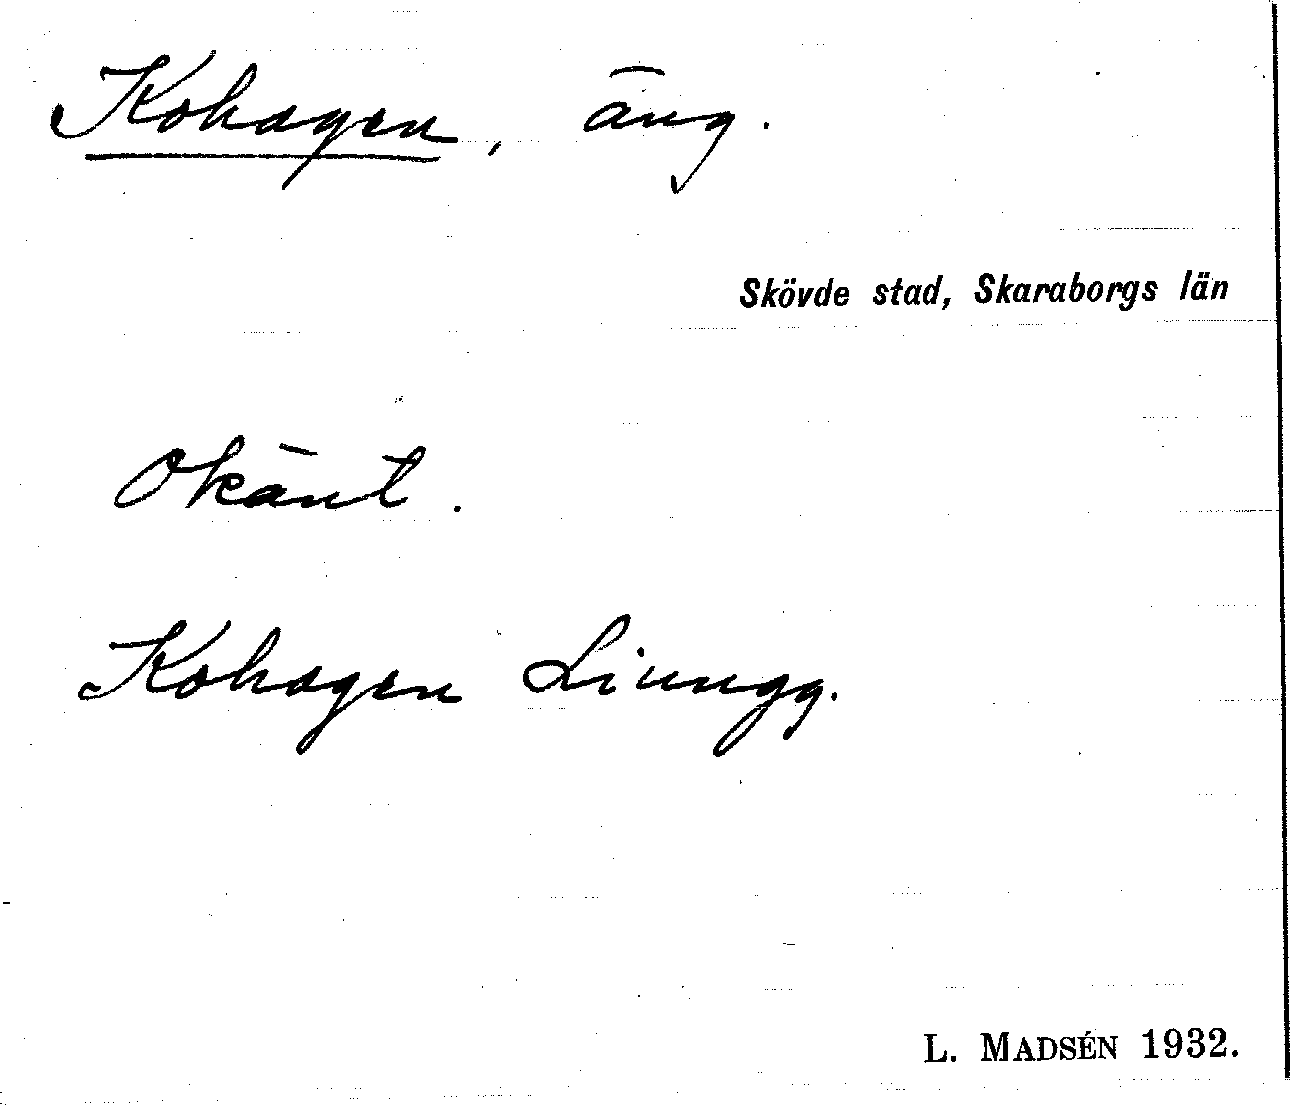 Kohagen, äng.
Skövde stad, Skaraborgs län
Okänt.
Kohagen Liungg.
L. MADSÉN 1932.